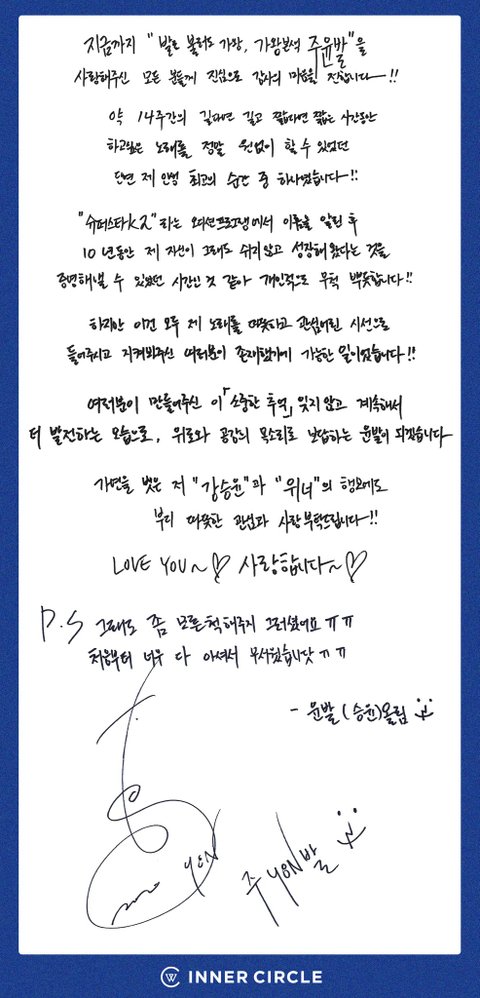 지금까지 "발로 불러도 가왕, 가왕분석 주윤발"을
사랑해주신 모든 분들께 진심으로 감사의 마음을 전합니다-!!
약 14주간의 길다면 길고 짧다면 짧은 시간동안
하고싶은 노래를 정말 원없이 할 수 있었던
단연 제 인생 최고의 순간 중 하나였습니다-!!
"슈퍼스타K2"라는 오디션프로그램에서 이름을 알린 후
10년동안 제 자신이 그래도 쉬지않고 성장해왔다는 것을
증명해낼 수 있었던 시간인 것 같아 개인적으로 무척 뿌듯합니다!!
하지만 이건 모두 제 노래를 따뜻하고 관심어린 시선으로
들어주시고 지켜봐주신 여러분이 존재했기에 가능한 일이었습니다!!
여러분이 만들어주신 이 「소중한 추억」 잊지않고 계속해서
더 발전하는 모습으로, 위로와 공감의 목소리로 보답하는 윤발이 되겠습니다
가면을 벗은 저 "강승윤"과 "위너"의 행보에도
부디 따뜻한 관심과 사랑 부탁드립니다-!!
LOVE YOU~♡ 사랑합니다~♡
P.S 그래도 좀 모른척해주지 그러셨어요 ㅠㅠ
처음부터 너무 다 아셔서 무서웠습니닷 ㅠㅠ
- 윤발(승윤)올림
YOON
주YOON발
INNER CIRCLE